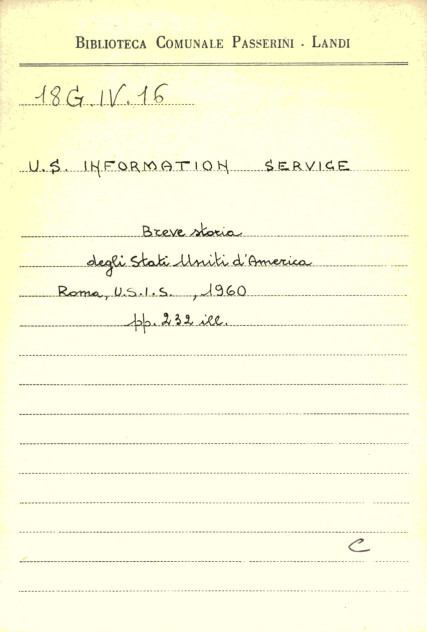 BIBLIOTECA COMUNALE PASSERINI - LANDI
18G.IV.16
U.S. INFORMATION SERVICE
Breve storia
degli Stati Uniti d'America
Roma, U.S.I.S. , 1960
pp. 232 ill.
C